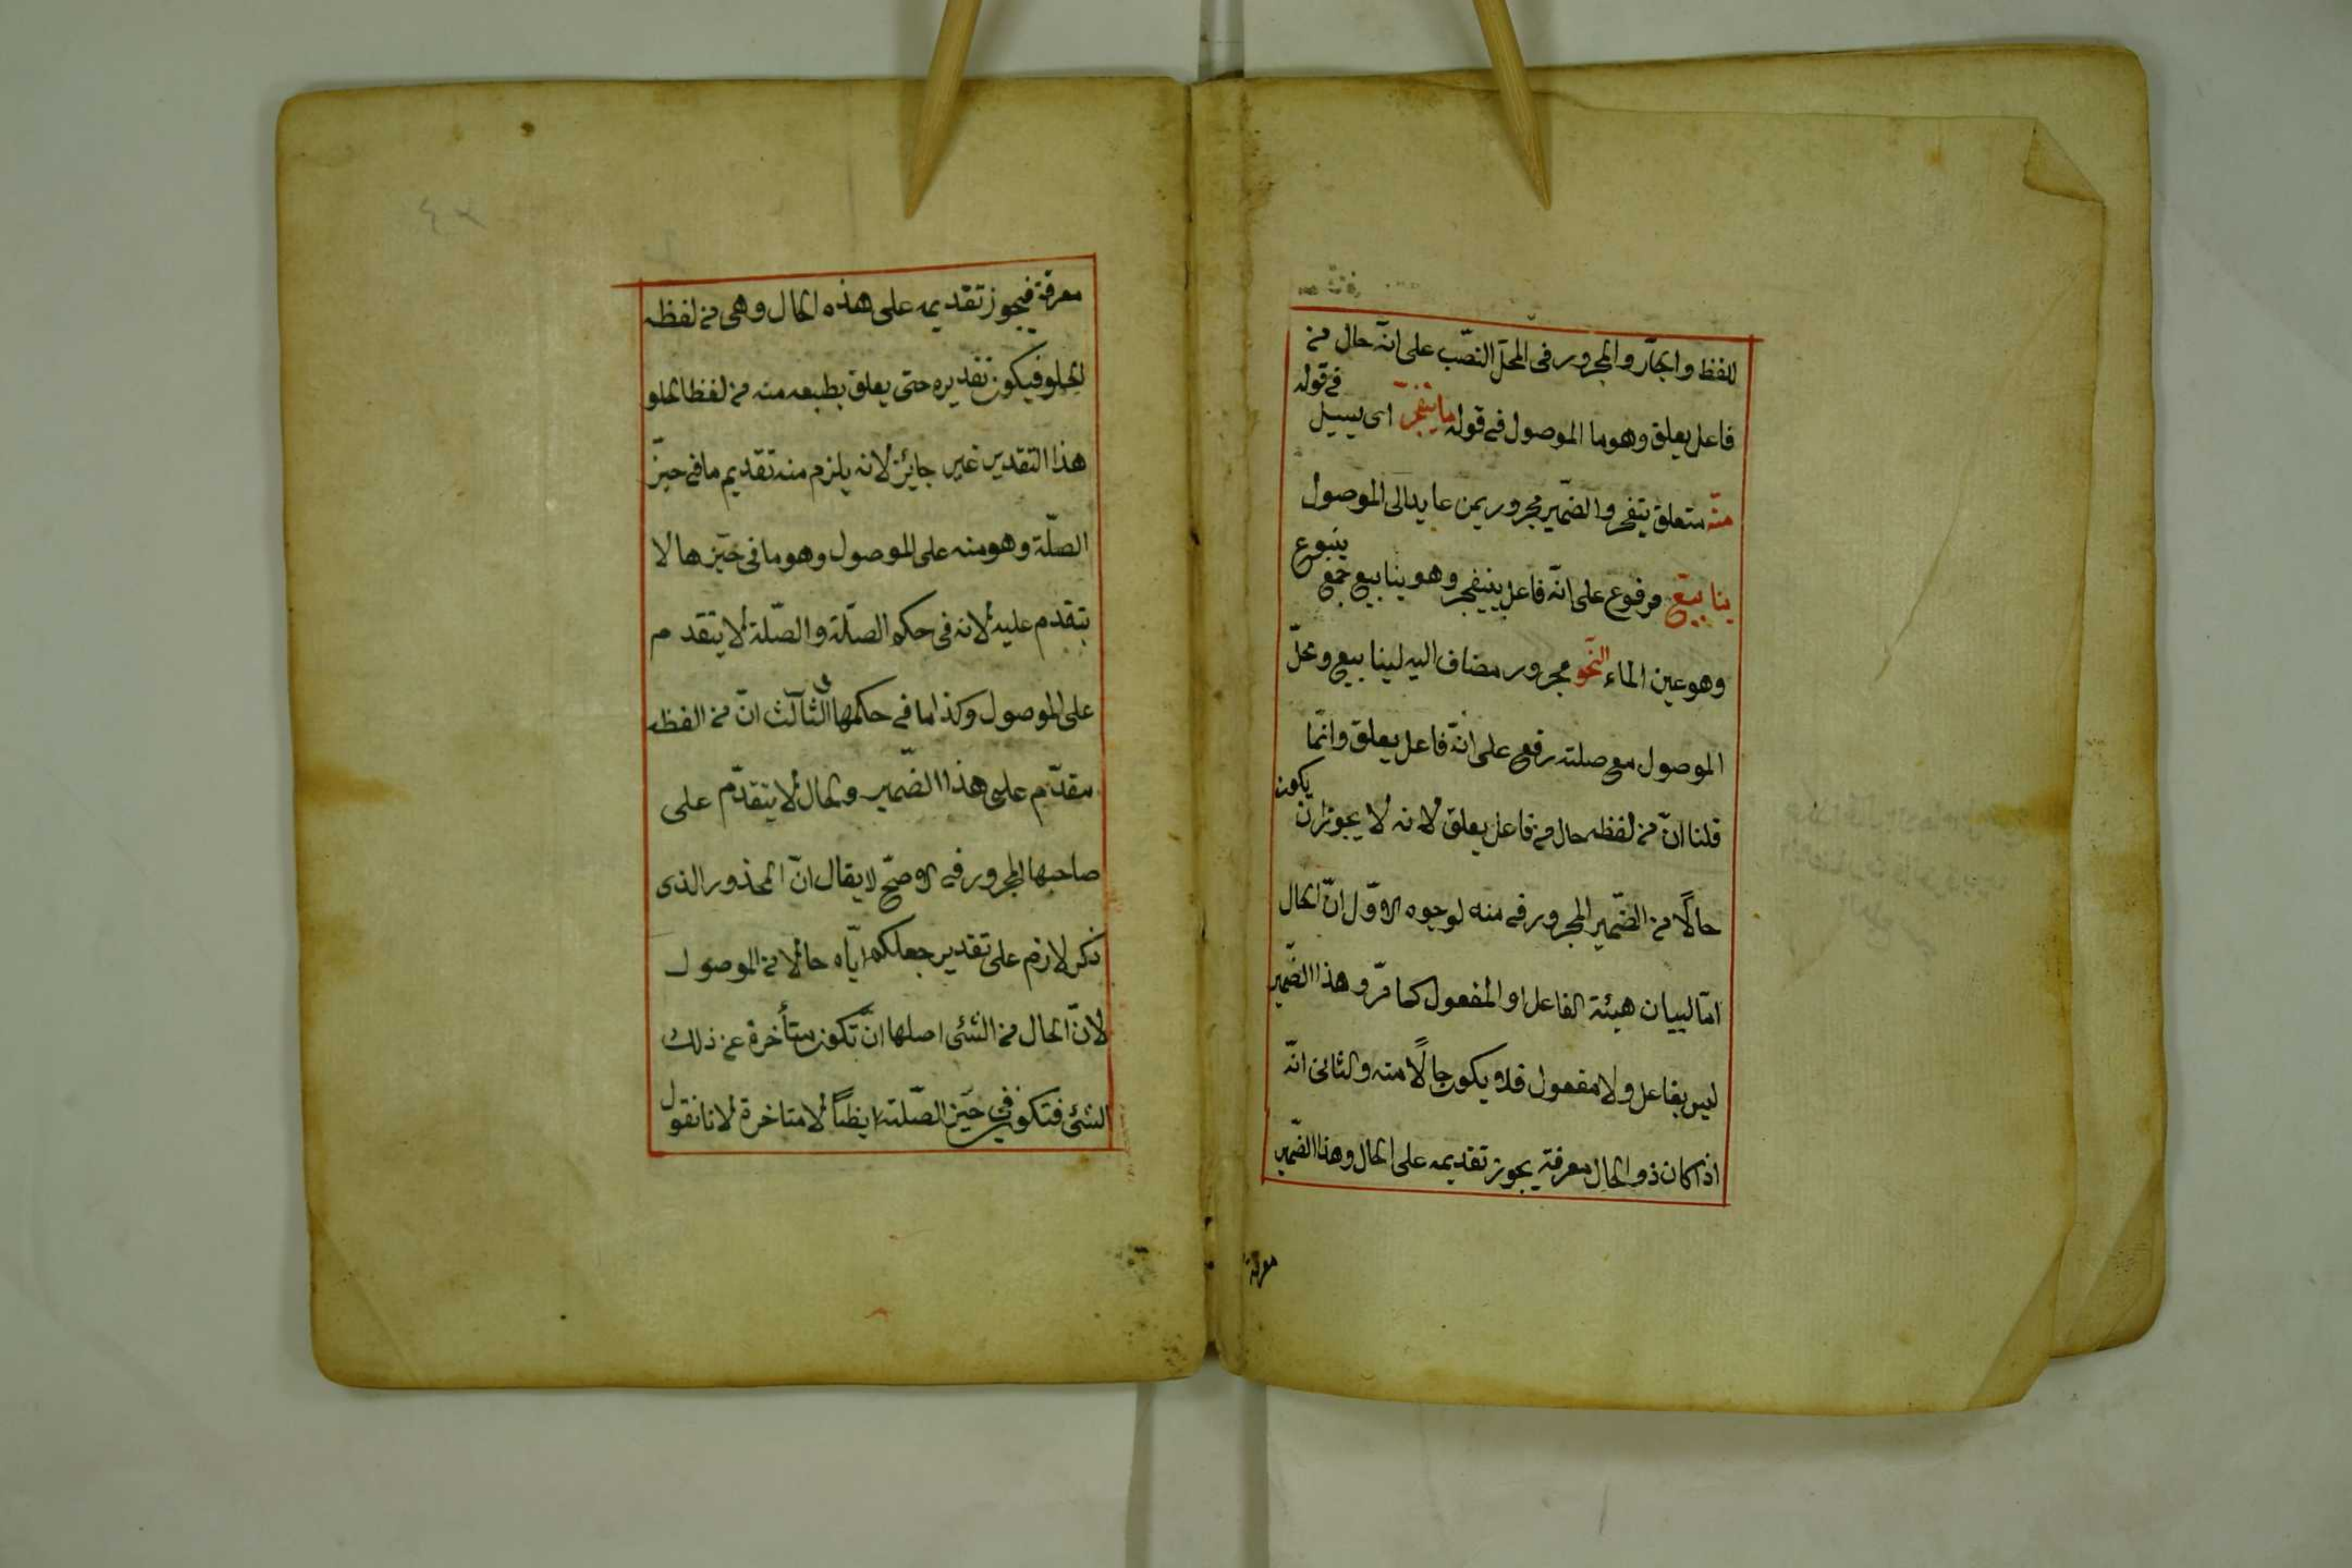 للفظ والجار والمجرور فى المحل النصب على انّه حال من
فاعل يعلق وهو ما الموصول فى قوله ما يتفجّر اى يسيل
فى قوله
منه متعلق يتفجر والضمير مجرور بمن عايد الى الموصول
ينابيع مرفوع على انّه فاعل يتفجر وهو ينابيع جمع
ينبوع
وهو عين الماء النحو مجرور مضاف اليه لينابيع ومحلّ
الموصول مع صلته رفع على انّه فاعل يعلق وانّما
قلنا انّ من لفظه حال من فاعل يعلق لانه لا يجوز ان
يكون
حالًا من الضّمير المجرور فى منه لوجوه الاوّل انّ الحال
امّا لبيان هيئة الفاعل او المفعول كما مرّ وهذا الضّمير
ليس بفاعل ولا مفعول فلا يكون حالًا منه والثانى انّه
اذا كان ذو الحال معرفة يجوز تقديمه على الحال وهذا الضّمير
معرفة
معرفة فيجوز تقديمه على هذه الحال وهى من لفظه
الحلو فيكون تقديره حتى يعلق بطبعه منه من لفظ الحلو
هذا التقدير غير جايز لانه يلزم منه تقديم ما فى حيّز
الصّلة وهو منه على الموصول وهو ما فى حيّزها لا
يتقدم عليه لانه فى حكم الصّلة والصّلة لا يتقدم
على الموصول وكذا ما فى حكمها الثالث انّ من الفظه
مقدّم على هذا الضّمير والحال لا يتقدّم على
صاحبها المجرور فى الاصحّ لا يقال انّ المحذور الذى
ذكر لازم على تقدير جعلكم ايّاه حالا من الموصول
لانّ الحال من الشئ اصلها انّ تكون متأخرة عن ذلك
الشئ فتكون فى حيّز الصّلة ايظاً لا متاخرة لانا نقول